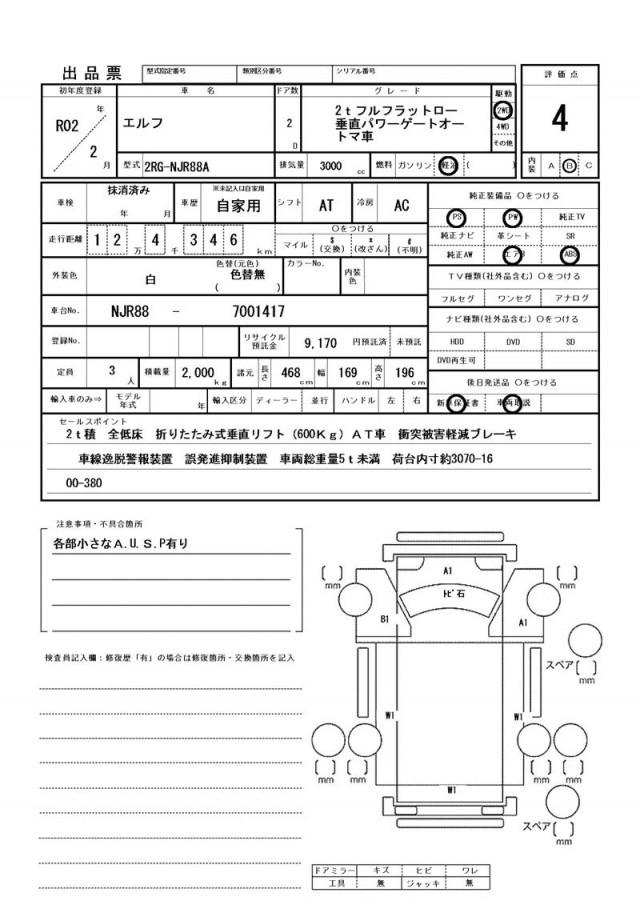 出品票 型式指定番号 類別区分番号 シリアル番号
評価点
4
初年度登録 車名 ドア数 グレード 駆動
R02 年 2 月
エルフ
2 D
2tフルフラットロー
垂直パワーゲートオー
トマ車
2WD
4WD
その他
型式 2RG-NJR88A 排気量 3000 cc 燃料 ガソリン 軽油 ( )
内装 A B C
車検 抹消済み 年 月 車歴 ※未記入は自家用 自家用 シフト AT 冷房 AC
走行距離 1 2 万 4 千 3 4 6 km
〇をつける
マイル $(交換) *(改ざん) #(不明)
外装色 白 色替(元色) 色替無 ( ) カラーNo. 内装色
車台No. NJR88 - 7001417
登録No. リサイクル預託金 9,170 円預託済 未預託
定員 3 人 積載量 2,000 kg 諸元 長さ 468 cm 幅 169 cm 高さ 196 cm
輸入車のみ⇒ モデル年式 年 輸入区分 ディーラー 並行 ハンドル 左 右
純正装備品 〇をつける
PS PW 純正TV
純正ナビ 革シート SR
純正AW エアB ABS
TV種類(社外品含む) 〇をつける
フルセグ ワンセグ アナログ
ナビ種類(社外品含む) 〇をつける
HDD DVD SD
DVD再生可
後日発送品 〇をつける
新車保証書 車両取説
セールスポイント
2t積 全低床 折りたたみ式垂直リフト(600Kg)AT車 衝突被害軽減ブレーキ
車線逸脱警報装置 誤発進抑制装置 車両総重量5t未満 荷台内寸約3070-16
00-380
注意事項・不具合箇所
各部小さなA.U.S.P有り
検査員記入欄:修復歴「有」の場合は修復箇所・交換箇所を記入
A1
ﾄﾋﾞ石
B1 A1
[ ] mm [ ] mm
スペア [ ] mm
W1 W1
[ ] mm [ ] mm [ ] mm [ ] mm
W1
スペア [ ] mm
ドアミラー キズ ヒビ ワレ
工具 無 ジャッキ 無